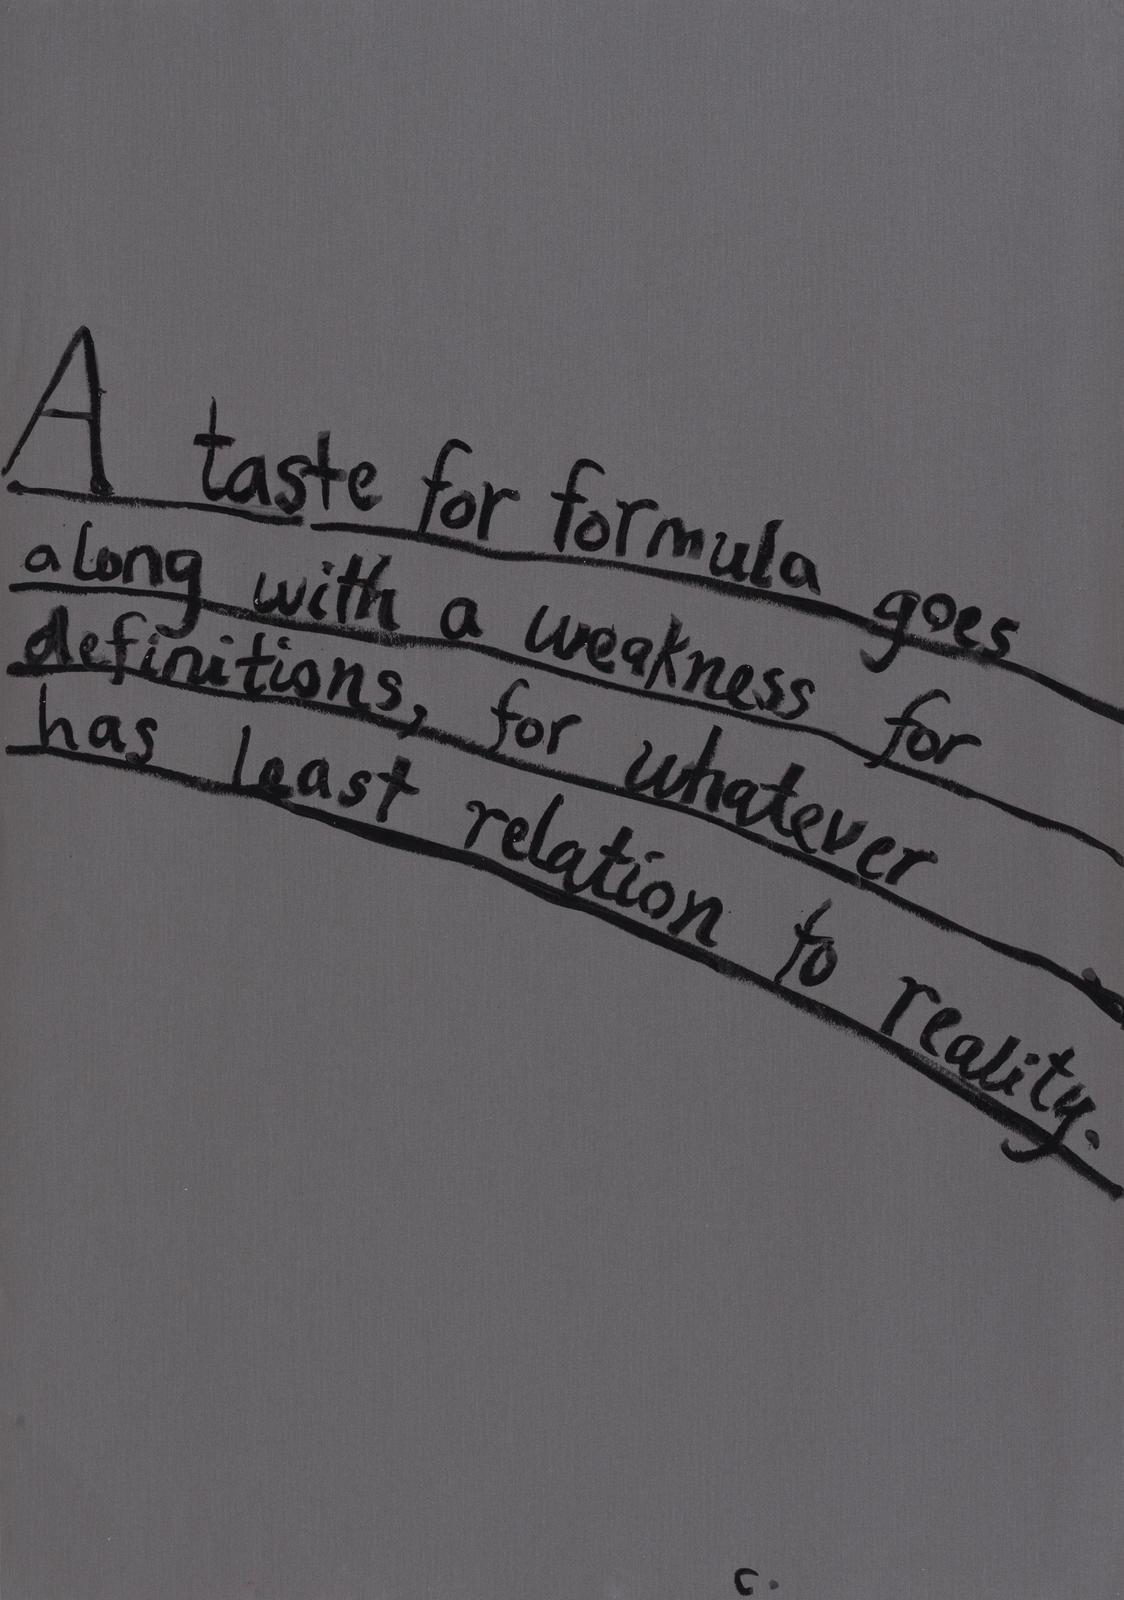 A taste for formula goes
along with a weakness for
definitions, for whatever
has least relation to reality.
c.